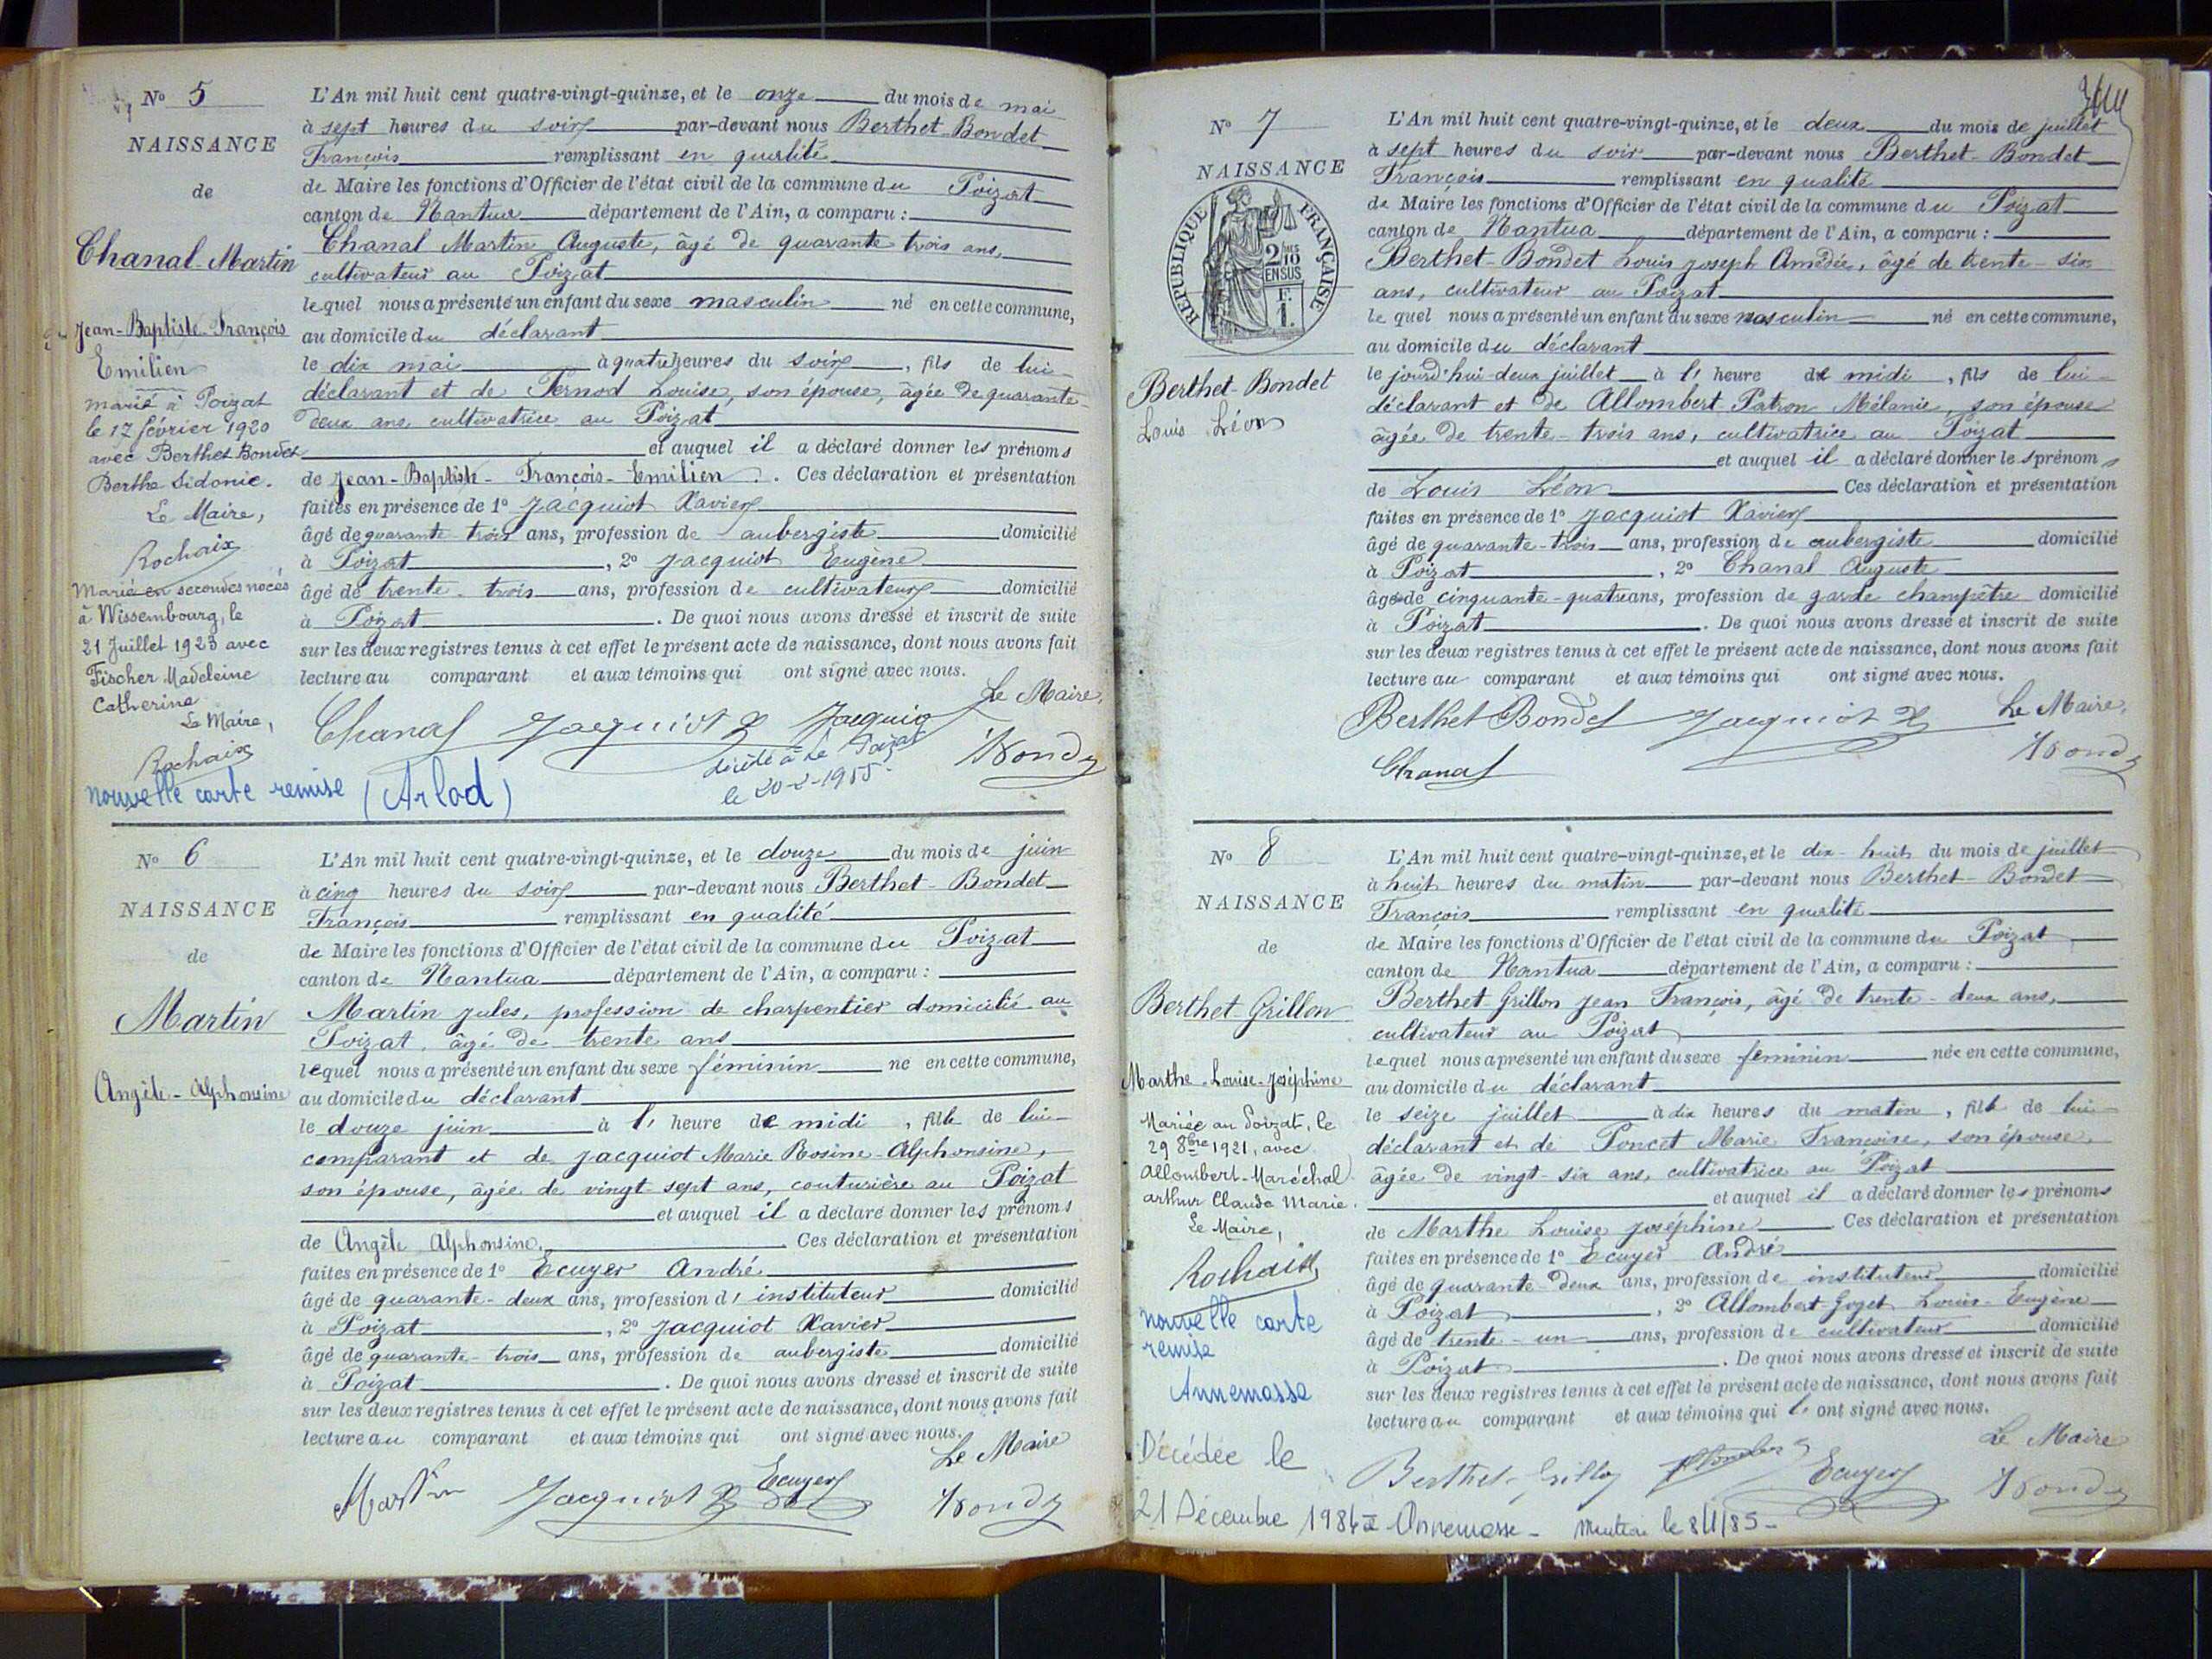 N° 5
NAISSANCE
de
Chanal-Martin
Jean-Baptiste-François
Emilien
marié à Poizat
le 17 février 1920
avec Berthet Bondet
Berthe Sidonie.
Le Maire,
Rochaix
Marié en secondes noces
à Wissembourg, le
21 Juillet 1923 avec
Fischer Madeleine
Catherine
Le Maire,
Rochaix
nouvelle carte remise (Arlod)
L'An mil huit cent quatre-vingt-quinze, et le onze du mois de mai
à sept heures du soir par-devant nous Berthet-Bondet
François remplissant en qualité
de Maire les fonctions d'Officier de l'état civil de la commune du Poizat
canton de Nantua département de l'Ain, a comparu :
Chanal Martin Auguste, âgé de quarante trois ans,
cultivateur au Poizat
lequel nous a présenté un enfant du sexe masculin né en cette commune,
au domicile du déclarant
le dix mai à quatre heures du soir, fils de lui-
déclarant et de Pernod Louise, son épouse, âgée de quarante-
deux ans, cultivatrice au Poizat
et auquel il a déclaré donner les prénoms
de Jean-Baptiste-François-Emilien. Ces déclaration et présentation
faites en présence de 1° Jacquiot Xavier
âgé de quarante-trois ans, profession de aubergiste domicilié
à Poizat, 2° Jacquiot Eugène
âgé de trente-trois ans, profession de cultivateur domicilié
à Poizat. De quoi nous avons dressé et inscrit de suite
sur les deux registres tenus à cet effet le présent acte de naissance, dont nous avons fait
lecture au comparant et aux témoins qui ont signé avec nous.
Le Maire,
Chanal Jacquiot X Jacquio
décédé à Le Poizat
le 20-2-1955.
N° 6
NAISSANCE
de
Martin
Angèle-Alphonsine
L'An mil huit cent quatre-vingt-quinze, et le douze du mois de juin
à cinq heures du soir par-devant nous Berthet-Bondet
François remplissant en qualité
de Maire les fonctions d'Officier de l'état civil de la commune du Poizat
canton de Nantua département de l'Ain, a comparu :
Martin Jules, profession de charpentier domicilié au
Poizat, âgé de trente ans
lequel nous a présenté un enfant du sexe féminin né en cette commune,
au domicile du déclarant
le douze juin à l' heure de midi, fille de lui-
comparant et de Jacquiot Marie Rosine-Alphonsine,
son épouse, âgée de vingt-sept ans, couturière au Poizat
et auquel il a déclaré donner les prénoms
de Angèle Alphonsine. Ces déclaration et présentation
faites en présence de 1° Ecuyer André
âgé de quarante-deux ans, profession d' instituteur domicilié
à Poizat, 2° Jacquiot Xavier
âgé de quarante-trois ans, profession de aubergiste domicilié
à Poizat. De quoi nous avons dressé et inscrit de suite
sur les deux registres tenus à cet effet le présent acte de naissance, dont nous avons fait
lecture au comparant et aux témoins qui ont signé avec nous.
Le Maire
Martin Jacquiot X Ecuyer
N° 7
NAISSANCE
RÉPUBLIQUE FRANÇAISE
2/10
EN SUS
F.
1.
Berthet-Bondet
Louis Léon
L'An mil huit cent quatre-vingt-quinze, et le deux du mois de juillet
à sept heures du soir par-devant nous Berthet-Bondet
François remplissant en qualité
de Maire les fonctions d'Officier de l'état civil de la commune du Poizat
canton de Nantua département de l'Ain, a comparu :
Berthet-Bondet Louis Joseph Amédée, âgé de trente-six
ans, cultivateur au Poizat
lequel nous a présenté un enfant du sexe masculin né en cette commune,
au domicile du déclarant
le jourd'hui deux juillet à l' heure de midi, fils de lui-
déclarant et de Allombert Patron Mélanie, son épouse
âgée de trente-trois ans, cultivatrice au Poizat
et auquel il a déclaré donner les prénoms
de Louis Léon Ces déclaration et présentation
faites en présence de 1° Jacquiot Xavier
âgé de quarante-trois ans, profession de aubergiste domicilié
à Poizat, 2° Chanal Auguste
âgé de cinquante-quatre ans, profession de garde champêtre domicilié
à Poizat. De quoi nous avons dressé et inscrit de suite
sur les deux registres tenus à cet effet le présent acte de naissance, dont nous avons fait
lecture au comparant et aux témoins qui ont signé avec nous.
Le Maire,
Berthet Bondet Jacquiot X
Chanal
N° 8
NAISSANCE
de
Berthet-Grillon
Marthe-Louise-Joséphine
Mariée au Poizat, le
29 8bre 1921, avec
Allombert-Maréchal
Arthur Claude Marie.
Le Maire,
Rochaix
nouvelle carte
remise
Annemasse
Décédée le
21 Décembre 1984 à Annemasse - Mention le 8/1/85-
L'An mil huit cent quatre-vingt-quinze, et le dix-huit du mois de juillet
à huit heures du matin par-devant nous Berthet-Bondet
François remplissant en qualité
de Maire les fonctions d'Officier de l'état civil de la commune du Poizat
canton de Nantua département de l'Ain, a comparu :
Berthet-Grillon Jean François, âgé de trente-deux ans,
cultivateur au Poizat
lequel nous a présenté un enfant du sexe féminin née en cette commune,
au domicile du déclarant
le seize juillet à dix heures du matin, fille de lui-
déclarant et de Poncet Marie Françoise, son épouse,
âgée de vingt-six ans, cultivatrice au Poizat
et auquel il a déclaré donner les prénoms
de Marthe Louise Joséphine Ces déclaration et présentation
faites en présence de 1° Ecuyer André
âgé de quarante-deux ans, profession de instituteur domicilié
à Poizat, 2° Allombert-Goget Louis-Eugène
âgé de trente-un ans, profession de cultivateur domicilié
à Poizat. De quoi nous avons dressé et inscrit de suite
sur les deux registres tenus à cet effet le présent acte de naissance, dont nous avons fait
lecture au comparant et aux témoins qui ont signé avec nous.
Le Maire
Berthet-Grillon Ecuyer